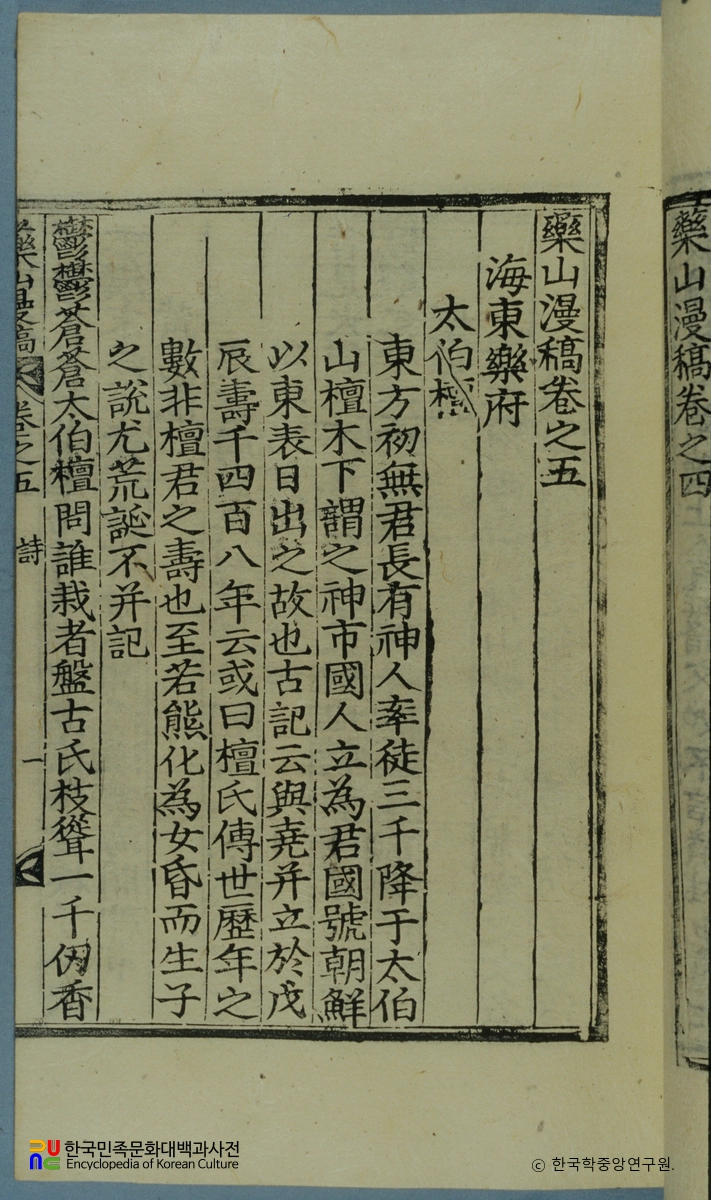 藥山漫稿卷之四
藥山漫稿卷之五
海東樂府
太伯檀
東方初無君長有神人率徒三千降于太伯
山檀木下謂之神市國人立為君國號朝鮮
以東表日出之故也古記云與堯并立於戊
辰壽千四百八年云或曰檀氏傳世歷年之
數非檀君之壽也至若熊化為女昏而生子
之說尤荒誕不并記
鬱鬱蒼蒼太伯檀問誰栽者盤古氏枝聳一千仞香
藥山漫稿 卷之五 詩 一
한국민족문화대백과사전
Encyclopedia of Korean Culture
ⓒ 한국학중앙연구원.